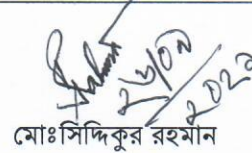 ২৬/০৯/২০২৩
মোঃসিদ্দিকুর রহমান